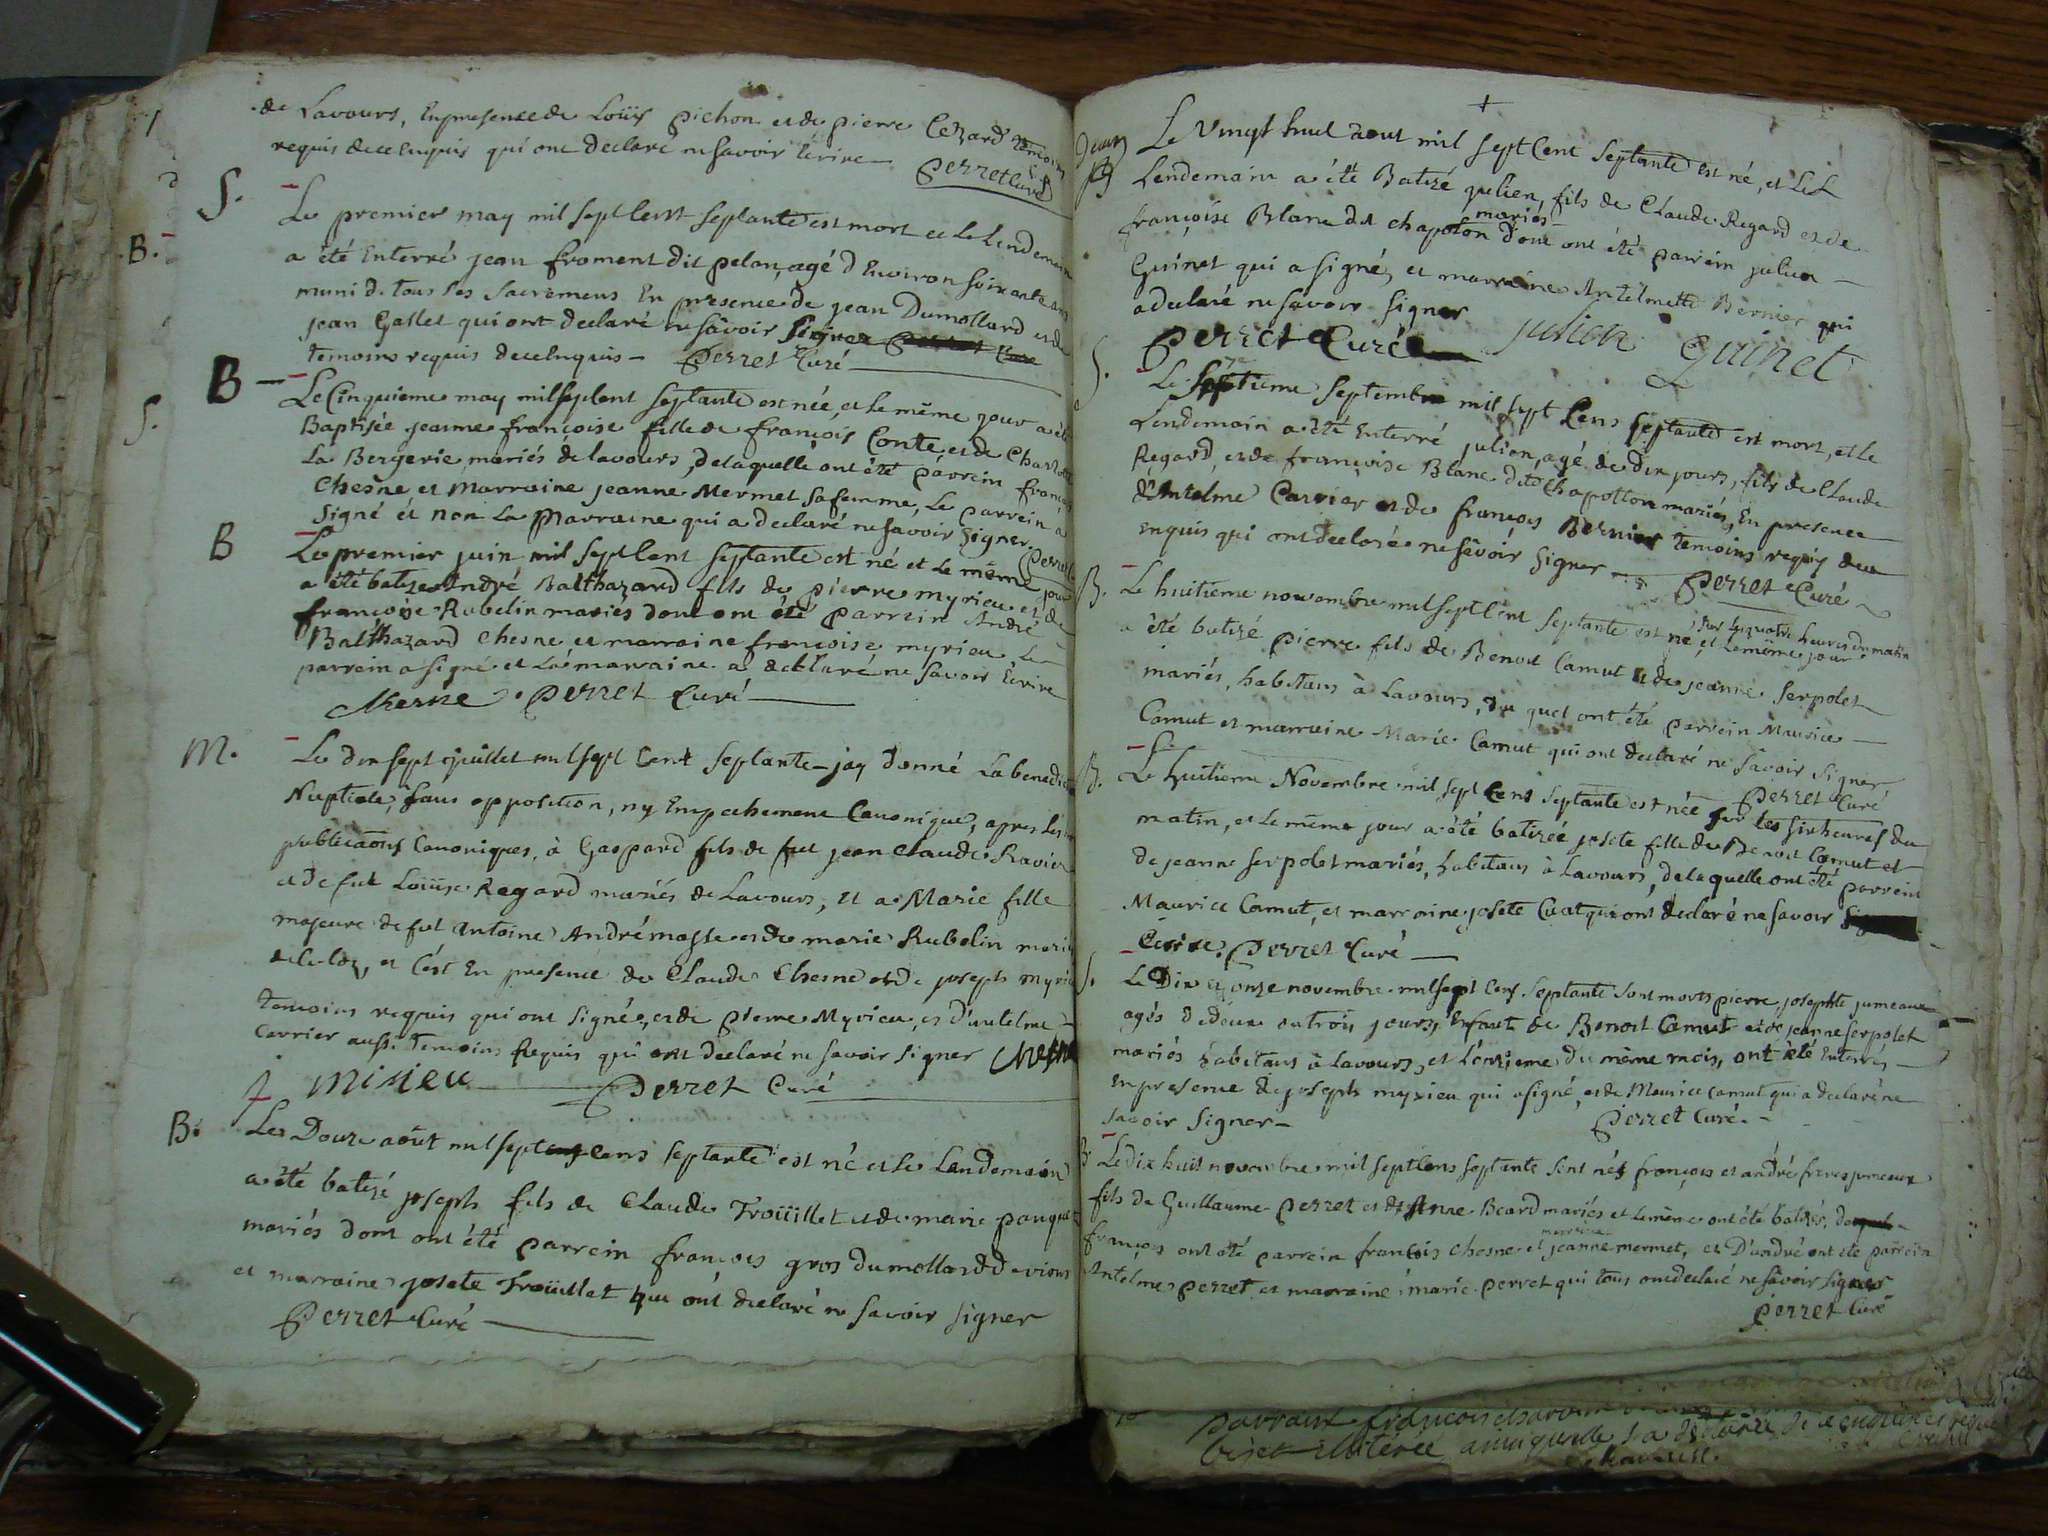 de Lavours, En presence de Loüis pichon et de pierre Cezard temoins
requis de ce enquis qui ont declaré ne savoir Ecrire Perret Curé
S. Le premier may mil sept cent septante est mort et le lendemain
a été Enterré jean froment dit pelan, agé d'Environ soixante ans
muni de tous les sacremens En presence de jean Dumollard et de
jean Gallet qui ont declaré ne savoir signer
temoins requis de ce enquis - Perret Curé
B - Le Cinquieme may mil sept cent septante est née, et le même jour a été
Baptisée jeanne françoise fille de françois Conte, et de Charlotte
La Bergerie mariés de lavours, de laquelle ont été parrein françois
Chesne et Marraine jeanne Mermet sa femme, Le parrein a
signé et non La Marraine qui a declaré ne savoir signer Perret
B Le premier juin mil sept cent septante est né et le même jour
a été batizé André Balthazard fils de pierre myrieu et de
françoise Rubelin mariés dont ont été parrein André
Balthazard Chesne et marraine françoise myrieu Le
parrein a signé et La marraine a declaré ne savoir Ecrire
Chesne Perret Curé
M. Le dix sept juillet mil sept Cent septante jay donné La benediction
Nuptiale, sans opposition, ny Empechement Canonique, apres les
publications Canoniques, à Gaspard fils de fut jean Claude Ravier
et de fut Loüise Regard mariés de Lavours, et a Marie fille
majeure de fut Antoine André masse et de marie Rubelin mariés
de Culoz, et C'est En presence de Claude Chesne et de joseph myrieu
temoins requis qui ont signé, et de pierre Myrieu, et d'antelme
Carrier aussi Temoins Requis qui ont declaré ne savoir signer Chesne
J Mirieu Perret Curé
B. Le Douze août mil sept cens septante est né et le Landemain
a été batizé joseph fils de Claude Troüillet et de marie pauquet
mariés dont ont été parrein françois gros dumollard d
et marraine josete Troüillet qui ont declaré ne savoir signer
Perret Curé
Le Vingt huit aout mil sept Cent septante est né, et le
Lendemain a été Batizé julien, fils de Claude Regard et de
françoise Blanc dit chapoton mariés dont ont été parrein julien
Guinet qui a signé, et marraine Antelmette Bernier qui
a declaré ne savoir signer julien Guinet
Perret Curé
S. Le septieme septembre mil sept Cens septante est mort, et le
Lendemain a été Enterré julien, agé de dix jours, fils de Claude
Regard, et de françoise Blanc dit Chapotton mariés, En presence
d'Antelme Carrier et de françois Bernier temoins requis de ce
enquis qui ont declaré ne savoir signer Perret Curé
B. Le huitieme novembre mil sept Cent septante est né sur les quatre heures du matin et le même jour
a été batizé pierre fils de Benoit Camut et de jeanne serpolet
mariés, habitans à Lavours, du quel ont été parrein Maurice
Camut et marraine Marie Camut qui ont declaré ne savoir signer
Perret Curé
B. Le huitieme Novembre mil sept Cens septante est née sur les six heures du
matin, et le même jour a été batizée josete fille de Benoit Camut et
de jeanne serpolet mariés, habitans à Lavours, de laquelle ont été parrein
Maurice Camut, et marraine josete Cuat qui ont declaré ne savoir
Ecrire. Perret Curé
S. Le Dix et onze novembre mil sept Cens septante sont morts pierre, josephte jumeaux
agés de deux ou trois jours, Enfants de Benoit Camut et de jeanne serpolet
mariés habitans à Lavours, et l'onzieme du même mois, ont été Enterrés
En presence de joseph myrieu qui a signé, et de Maurice Camut qui a declaré ne
savoir signer - Perret Curé.
B Le dix huit novembre mil sept Cens septante sont nés françois et andré freres jumeaux
fils de Guillaume Perret et de Anne Beard mariés et le même ont été batizés, de
françois ont été parrein francois chesne et marraine jeanne mermet, et D'andré ont ete parrein
Antelme Perret et marraine marie Perret qui tous ont declaré ne savoir signer
Perret Curé
parrain françois